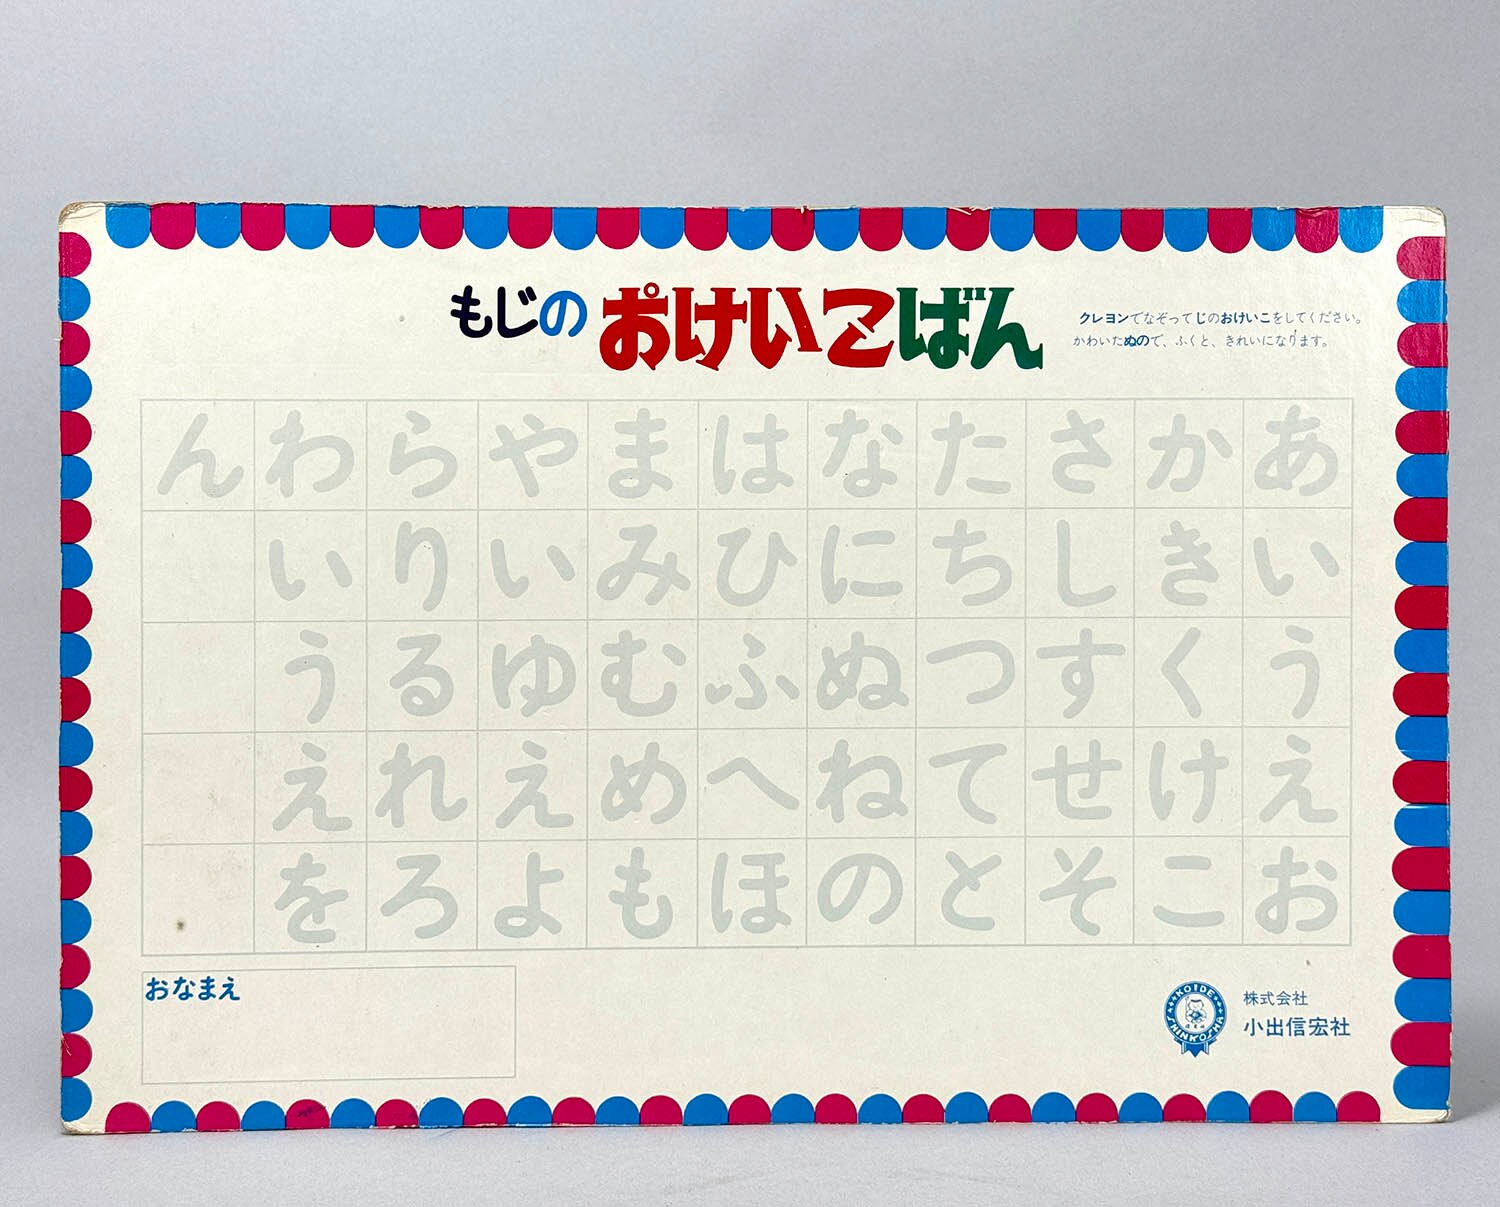 もじの おけいこばん
クレヨンでなぞってじのおけいこをしてください。
かわいたぬので、ふくと、きれいになります。
んわらやまはなたさかあ
いりいみひにちしきい
うるゆむふぬつすくう
えれえめへねてせけえ
をろよもほのとそこお
おなまえ
KOIDE
SHINKOSHA
株式会社
小出信宏社